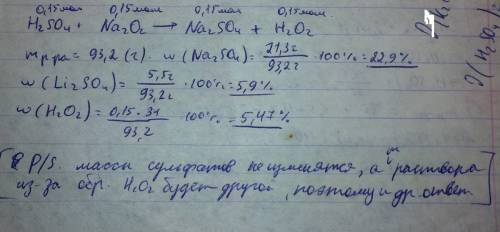 0,15мол 0,15мол 0,15мол 0,15мол
H₂SO₄ + Na₂O₂ → Na₂SO₄ + H₂O₂
m р-ра = 93,2 (г). w (Na₂SO₄) = 21,3г / 93,2г · 100% = 22,9%
w (Li₂SO₄) = 5,5г / 93,2г · 100% = 5,9%
w (H₂O₂) = 0,15·31 / 93,2 · 100% = 5,47%
P/S. массы сульфатов не изменятся, а m раствора
из-за обр. H₂O₂ будет другой, поэтому и др. ответ.
(H₂SO₄)